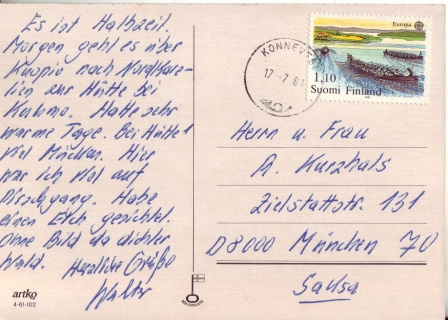 Es ist Halbzeit.
Morgen geht es über
Kuopio nach Nordkare-
lien zur Hütte bei
Kuhmo. Hatte sehr
warme Tage. Bei Hütte 1
viel Mücken. Hier
war ich viel auf
Pirschgang. Habe
einen Elch gesichtet.
Ohne Bild da dichter
Wald. Herzliche Grüße
Walter
artko
4-61-102
Europa
KONNEVE
17-7 81
1,10
Suomi Finland
Herrn u. Frau
A. Kurzhals
Zielstattstr. 131
D8000 München 70
Saksa